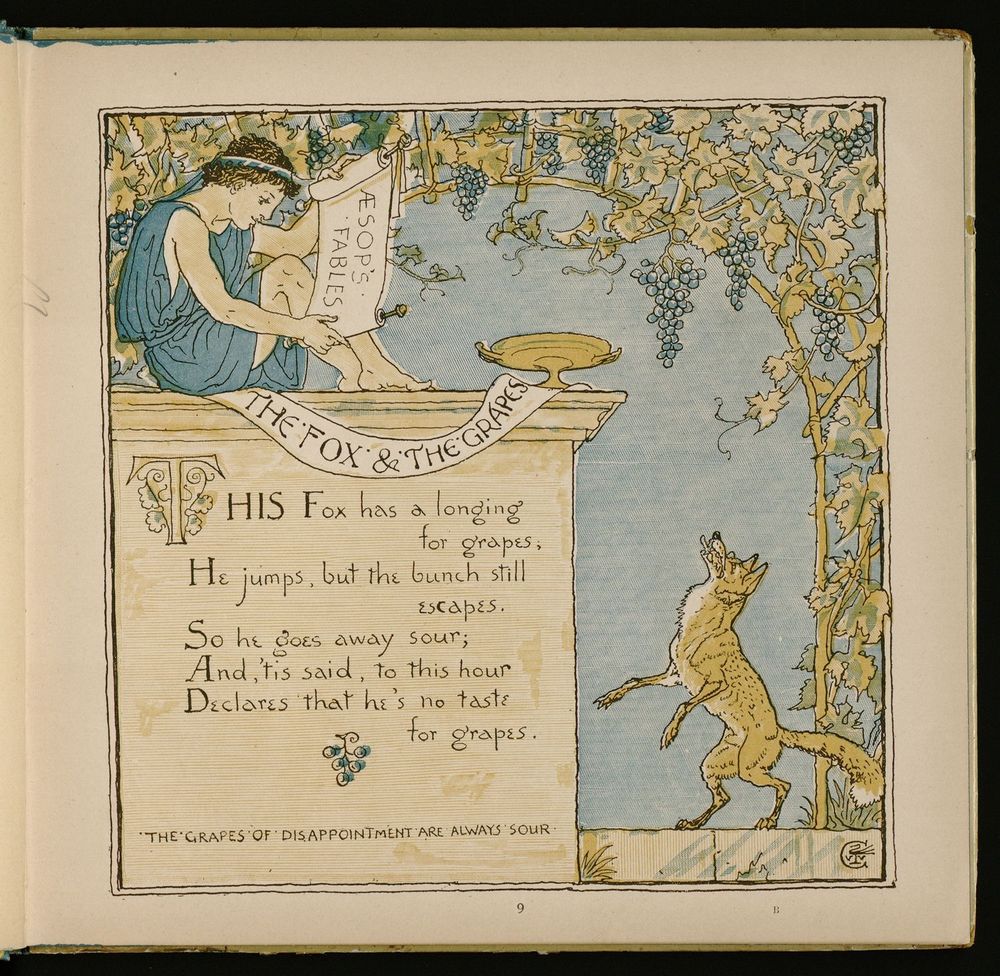 ÆSOP'S·
·FABLES·
THE·FOX·&·THE·GRAPES
THIS Fox has a longing
for grapes;
He jumps, but the bunch still
escapes.
So he goes away sour;
And, 'tis said, to this hour
Declares that he's no taste
for grapes.
·THE·GRAPES·OF·DISAPPOINTMENT ARE ALWAYS SOUR·
9
B